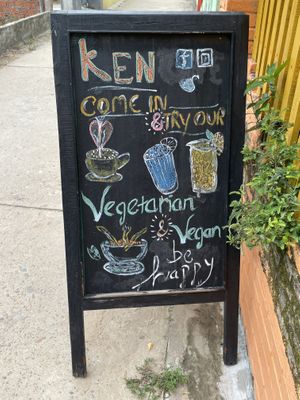 KEN
COME IN
& TRY OUR
Vegetarian
& Vegan
be
happy